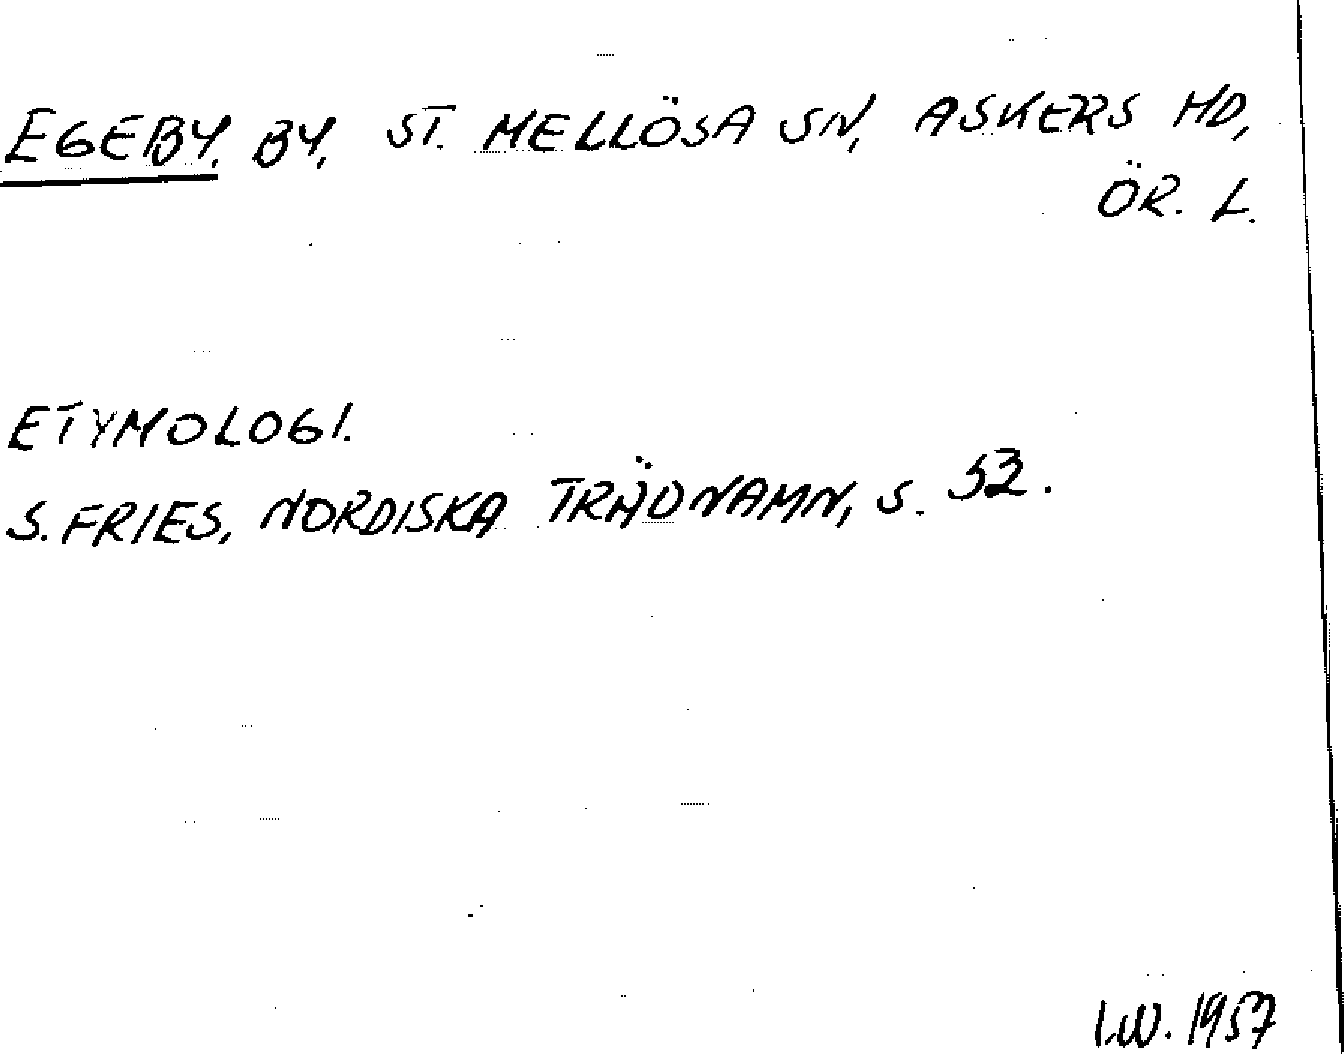 EGEBY, BY, ST. MELLÖSA SN, ASKERS HD,
ÖR. L.
ETYMOLOGI.
S. FRIES, NORDISKA TRÄDNAMN, S. 52.
I.W. 1957